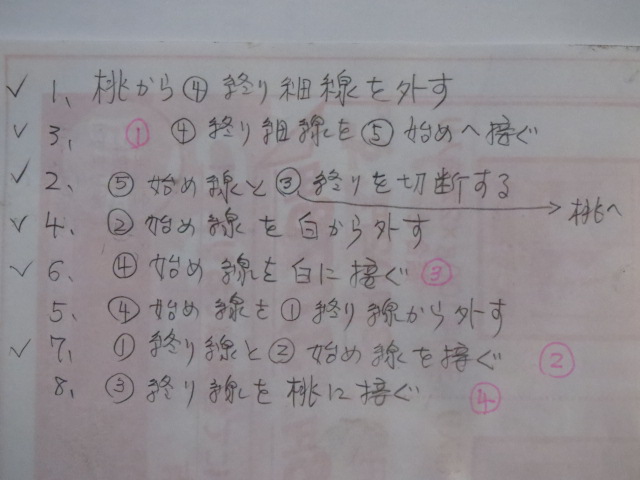 ✓ 1、桃から④終り細線を外す
✓ 3、① ④終り細線を⑤始めへ接ぐ
✓ 2、⑤始め線と③終りを切断する → 桃へ
✓ 4、②始め線を白から外す
✓ 6、④始め線を白に接ぐ ③
5、④始め線を①終り線から外す
✓ 7、①終り線と②始め線を接ぐ ②
8、③終り線を桃に接ぐ ④